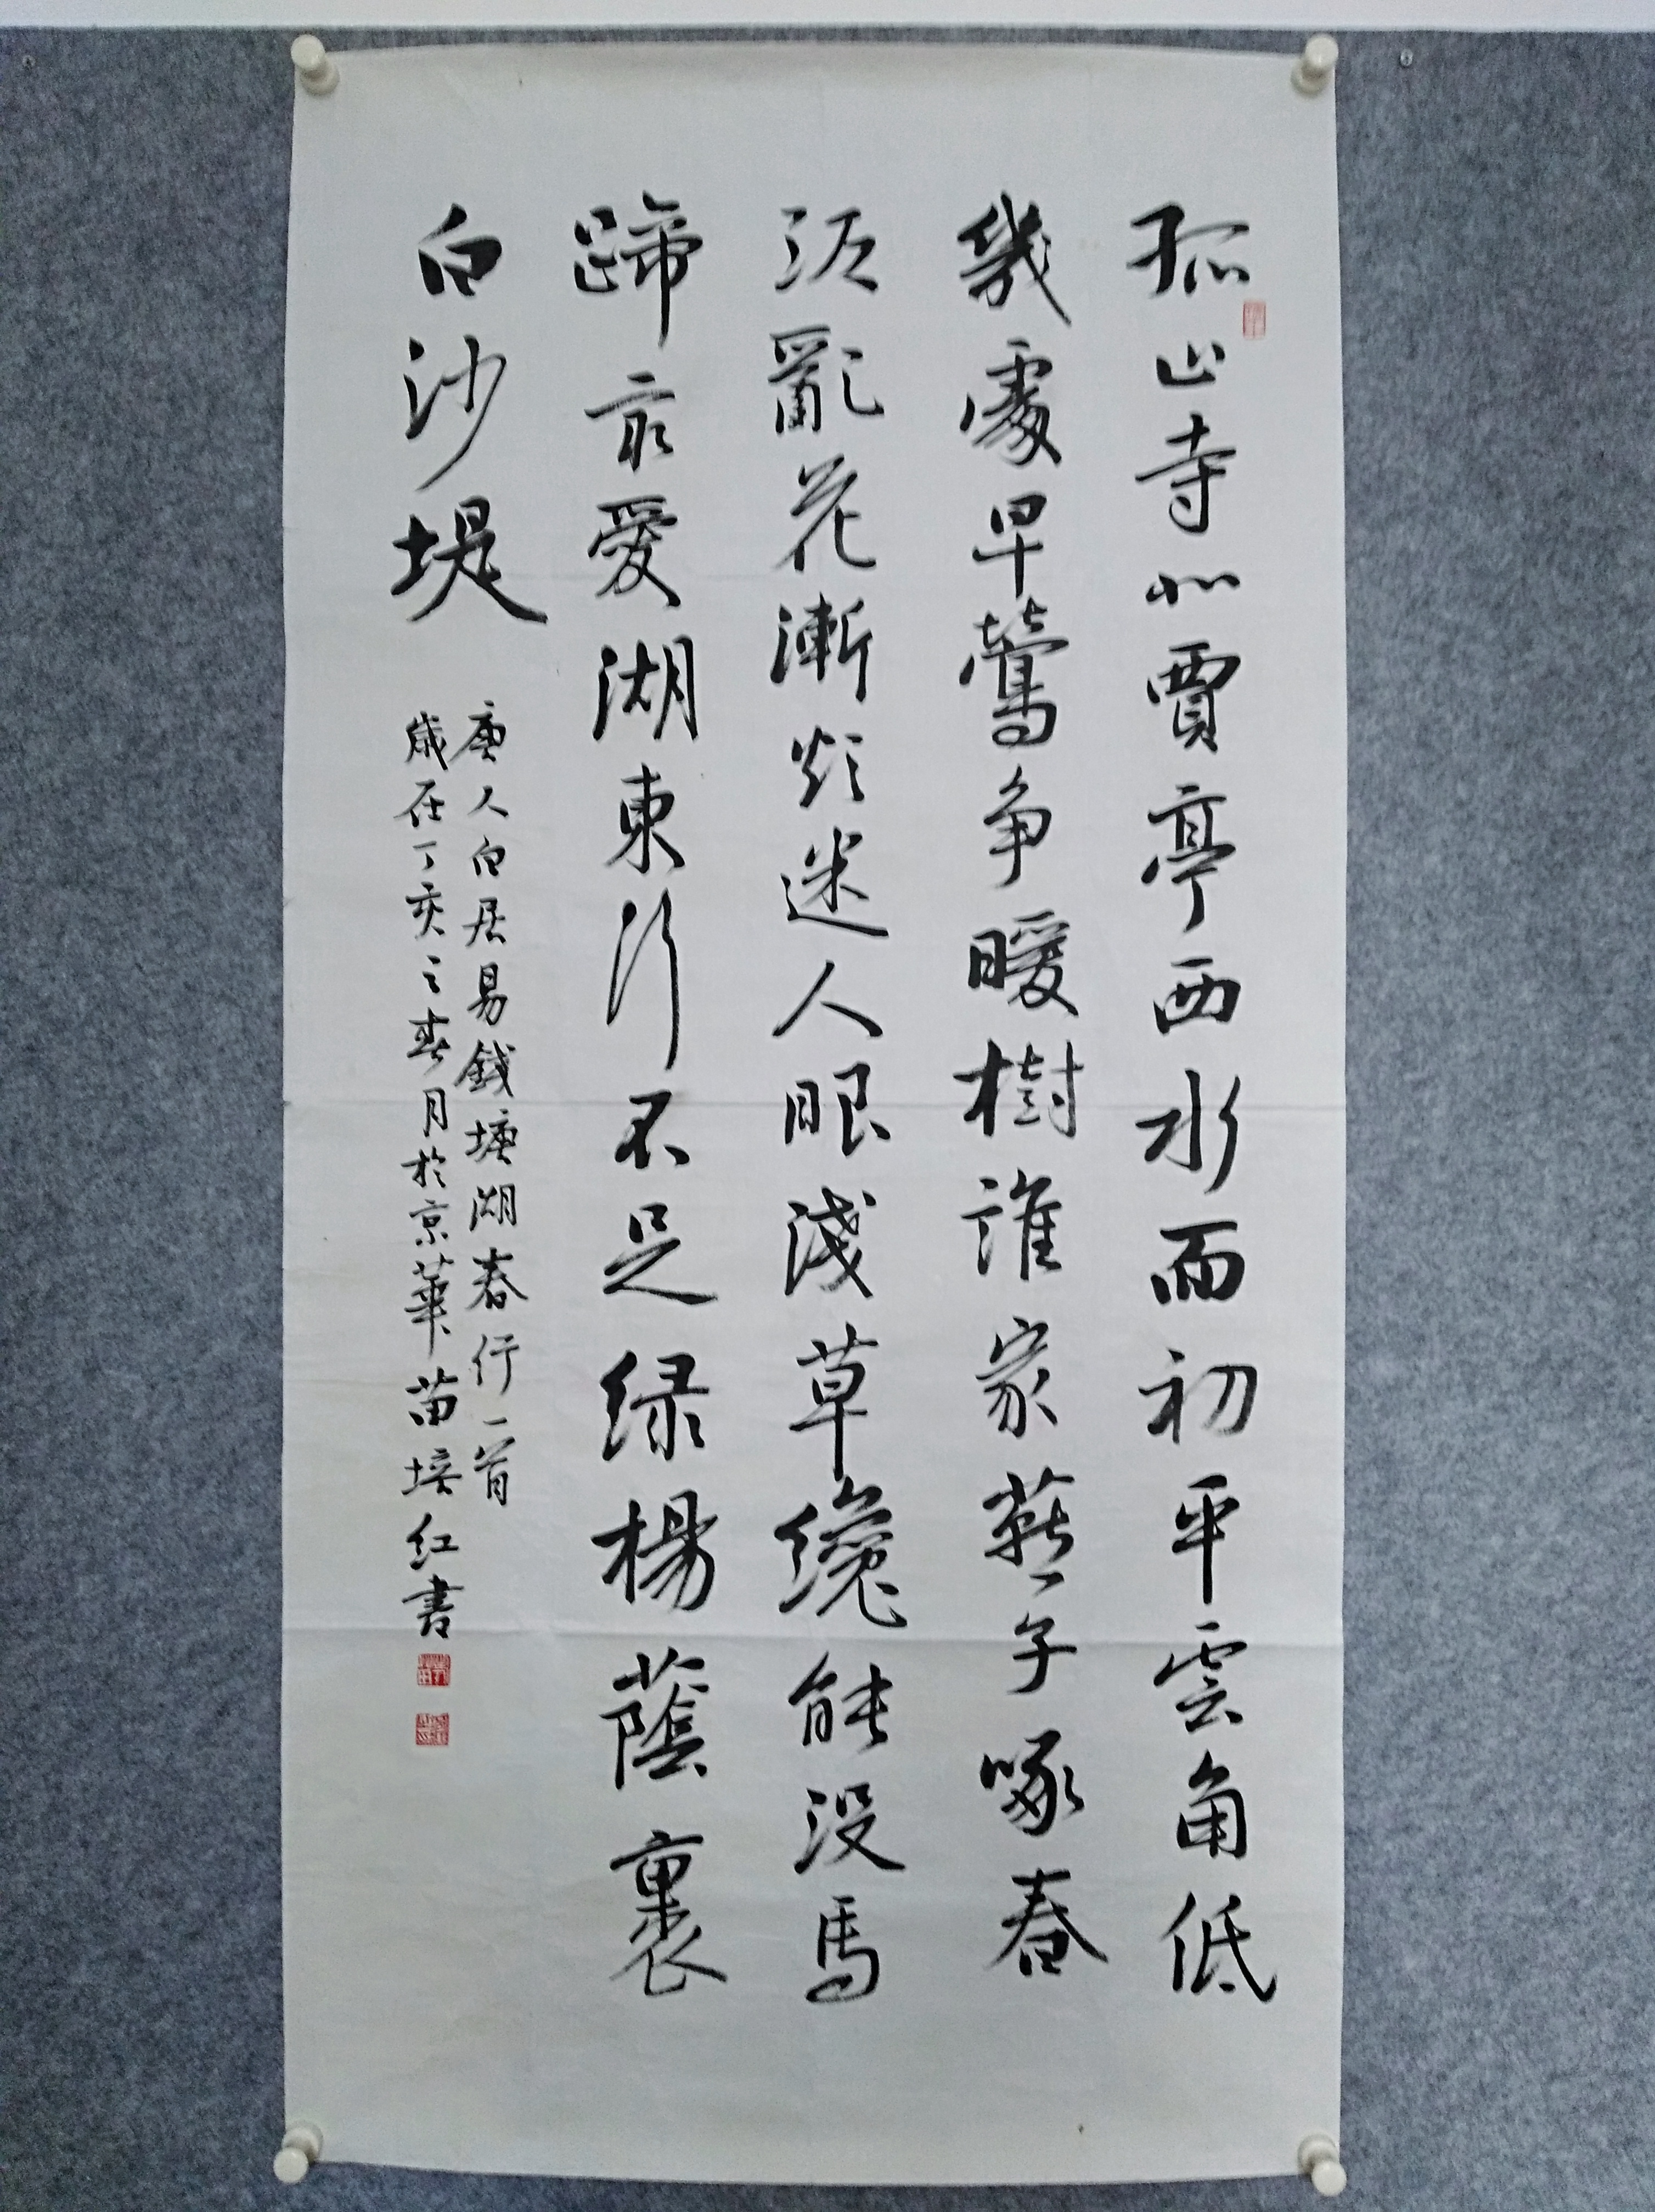 孤山寺北賈亭西水面初平雲角低
幾處早鶯争暖樹誰家燕子啄春
泥亂花漸欲迷人眼淺草纔能没馬
蹄最愛湖東行不足绿楊蔭裏
白沙堤
唐人白居易錢塘湖春行一首
歲在丁亥之春月於京華苗培红書